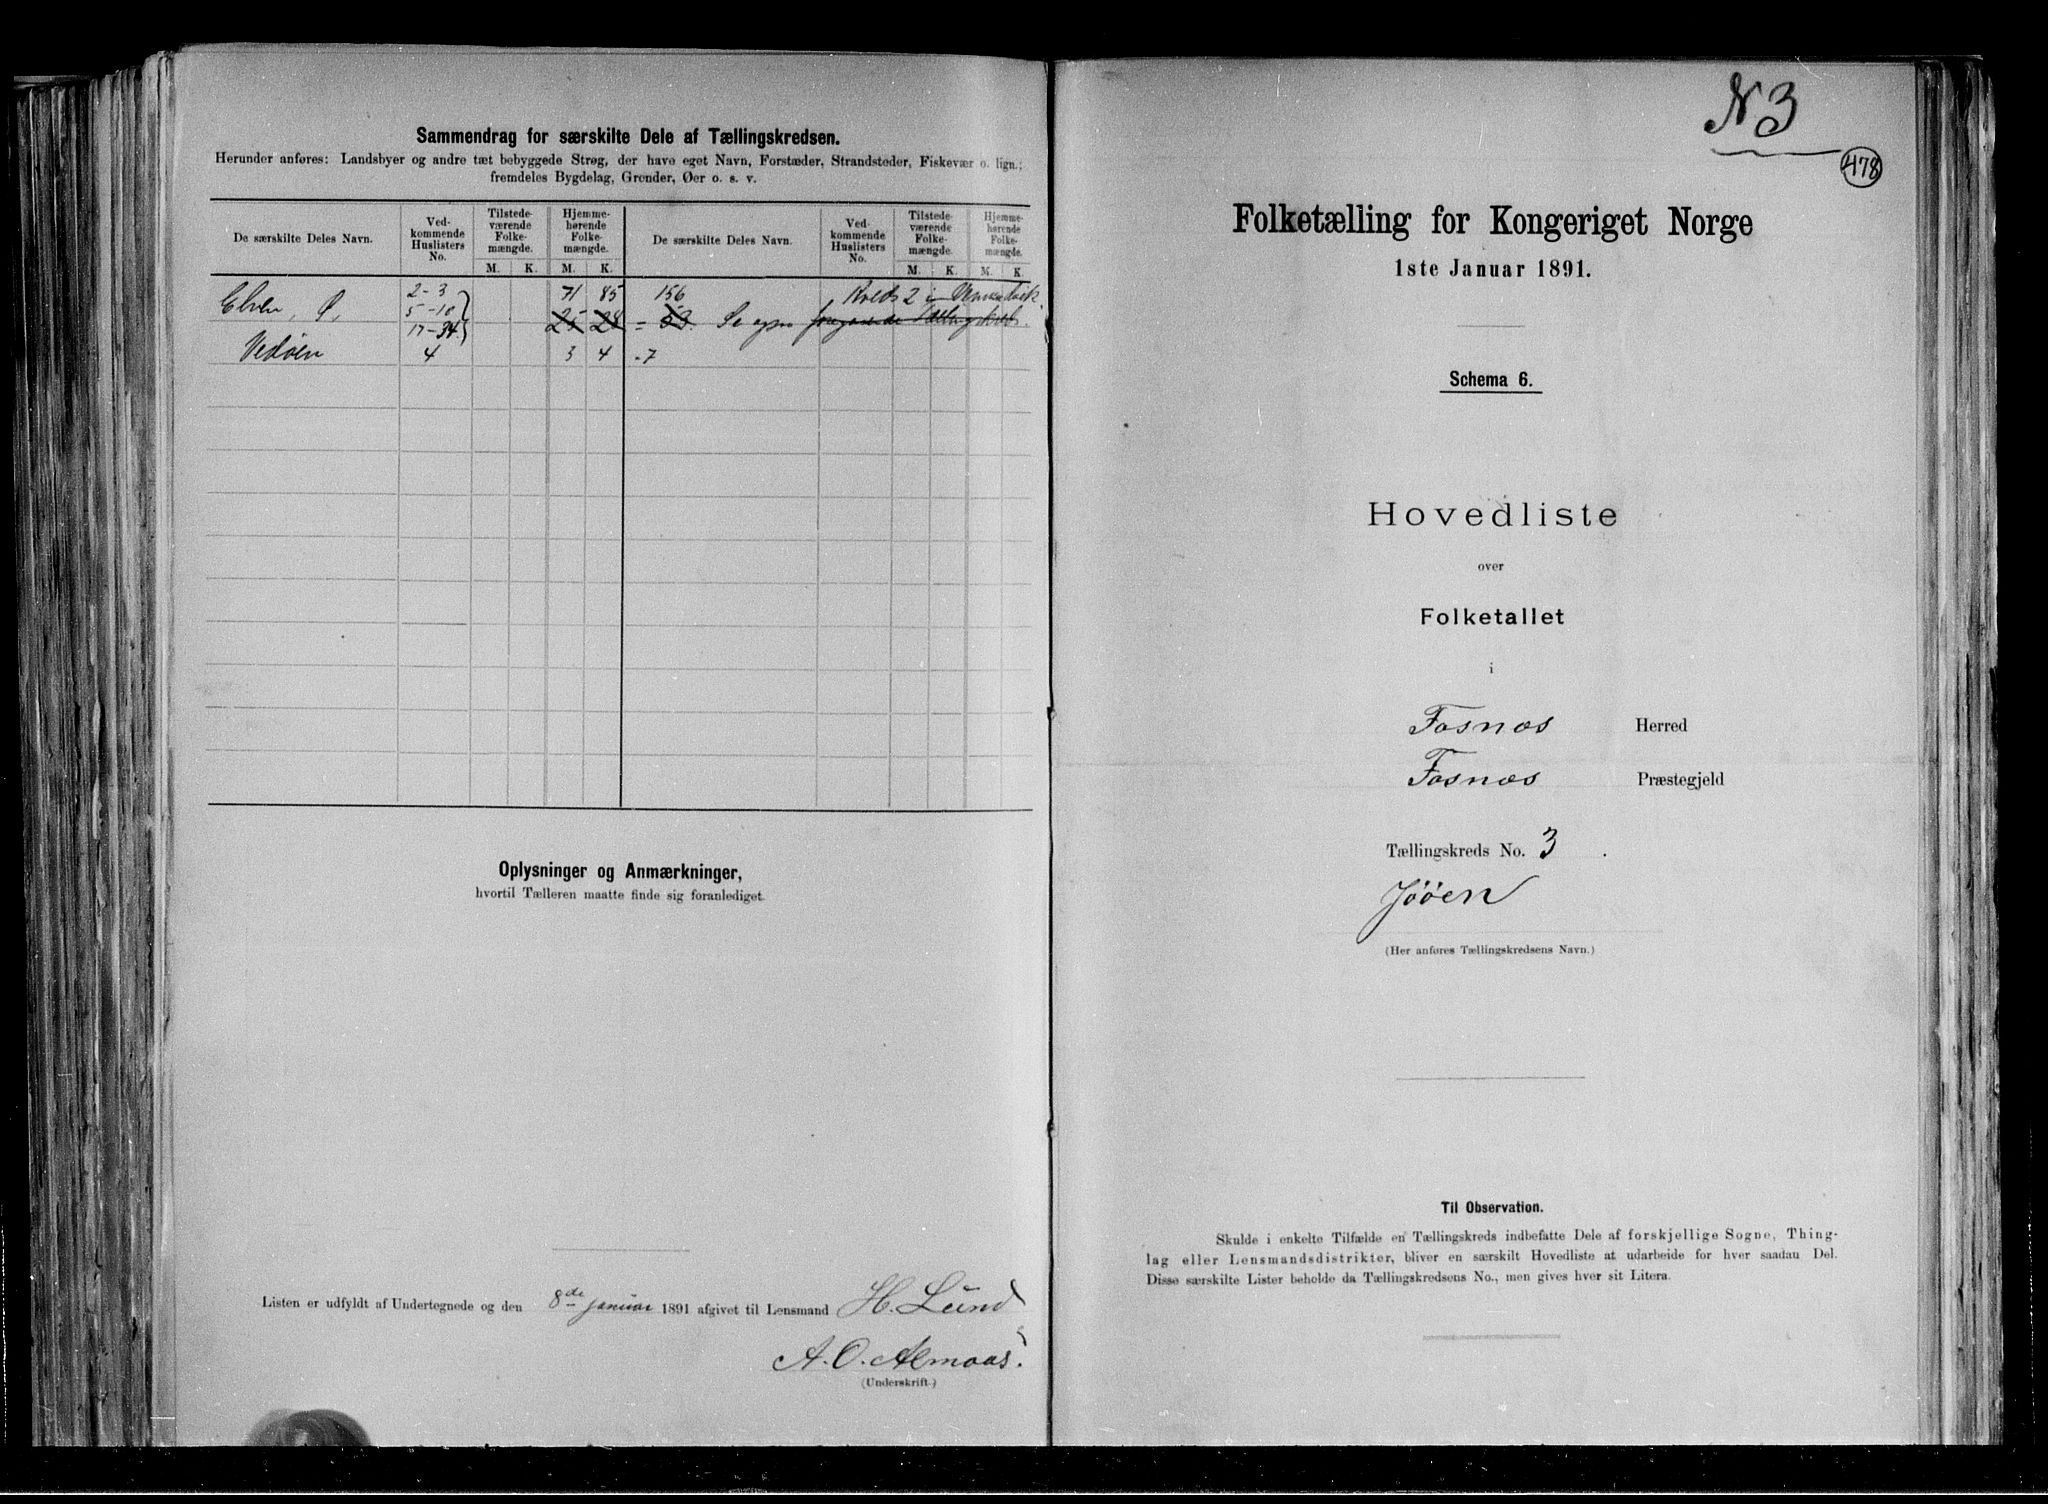 Sammendrag for særskilte Dele af Tællingskredsen.
Herunder anføres: Landsbyer og andre tæt bebyggede Strøg, der have eget Navn, Forstæder, Strandsteder, Fiskevær o. lign.;
fremdeles Bygdelag, Grender, Øer o. s. v.
De særskilte Deles Navn. Ved-kommende Huslisters No. Tilstede-værende Folke-mængde. Hjemme-hørende Folke-mængde. De særskilte Deles Navn. Ved-kommende Huslisters No. Tilstede-værende Folke-mængde. Hjemme-hørende Folke-mængde.
M. K. M. K. M. K. M. K.
Elven, Ø, 2-3 71 85 156 Kreds 2 i
5-10 25 28 = 53 Se
17-34
Vedøen 4 3 4 -7
Oplysninger og Anmærkninger,
hvortil Tælleren maatte finde sig foranlediget.
Listen er udfyldt af Undertegnede og den 8de januar 1891 afgivet til Lensmand H. Lund
A. O. Almaas.
(Underskrift.)
N 3
478
Folketælling for Kongeriget Norge
1ste Januar 1891.
Schema 6.
Hovedliste
over
Folketallet
i
Fosnæs Herred
Fosnæs Præstegjeld
Tællingskreds No. 3.
Jøøen
(Her anføres Tællingskredsens Navn.)
Til Observation.
Skulde i enkelte Tilfælde en Tællingskreds indbefatte Dele af forskjellige Sogne, Thing-
lag eller Lensmandsdistrikter, bliver en særskilt Hovedliste at udarbeide for hver saadan Del.
Disse særskilte Lister beholde da Tællingskredsens No., men gives hver sit Litera.